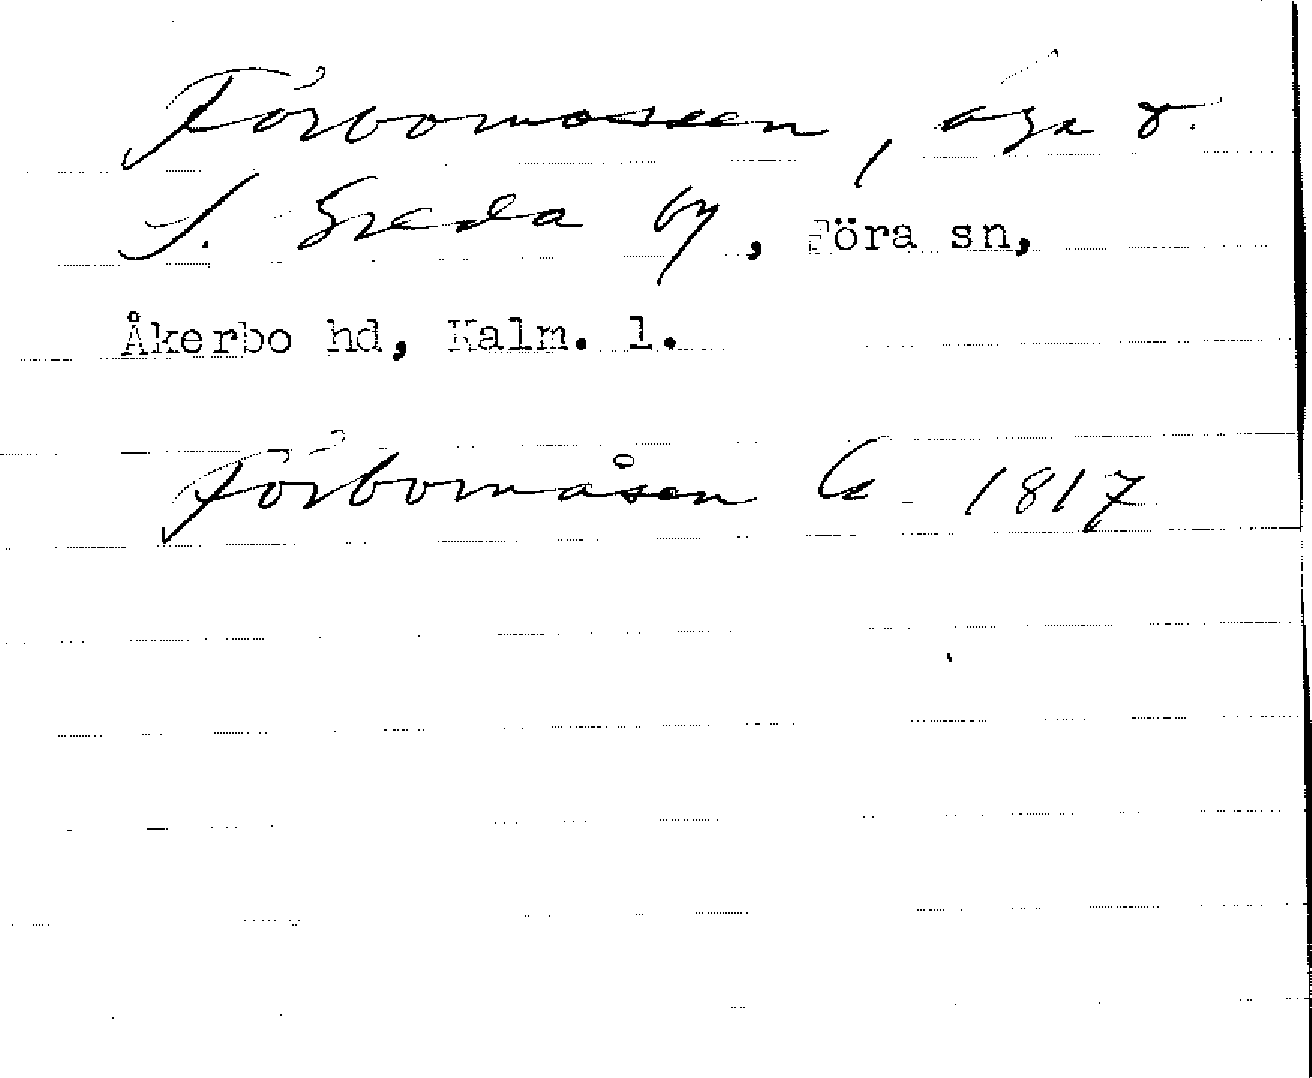 Förbomossen, äga t.
S. Greda by, Föra sn,
Åkerbo hd, Kalm. l.
Förbomåsen 1817